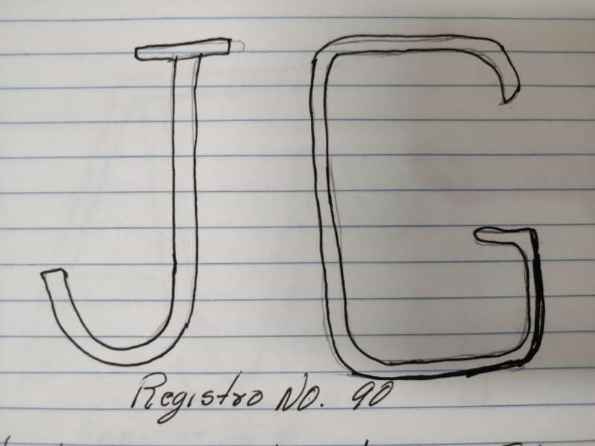 J G
Registro No. 90